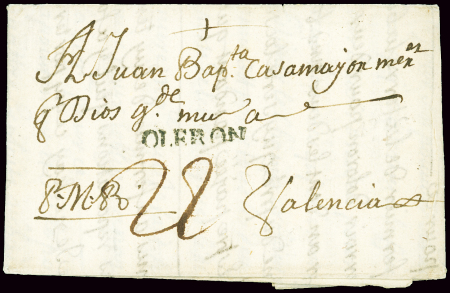 +
A Juan Bap.ta Casamayor mer.
q Dios g.de m.s a.
OLERON
P. M. Ro. 22 Valencia